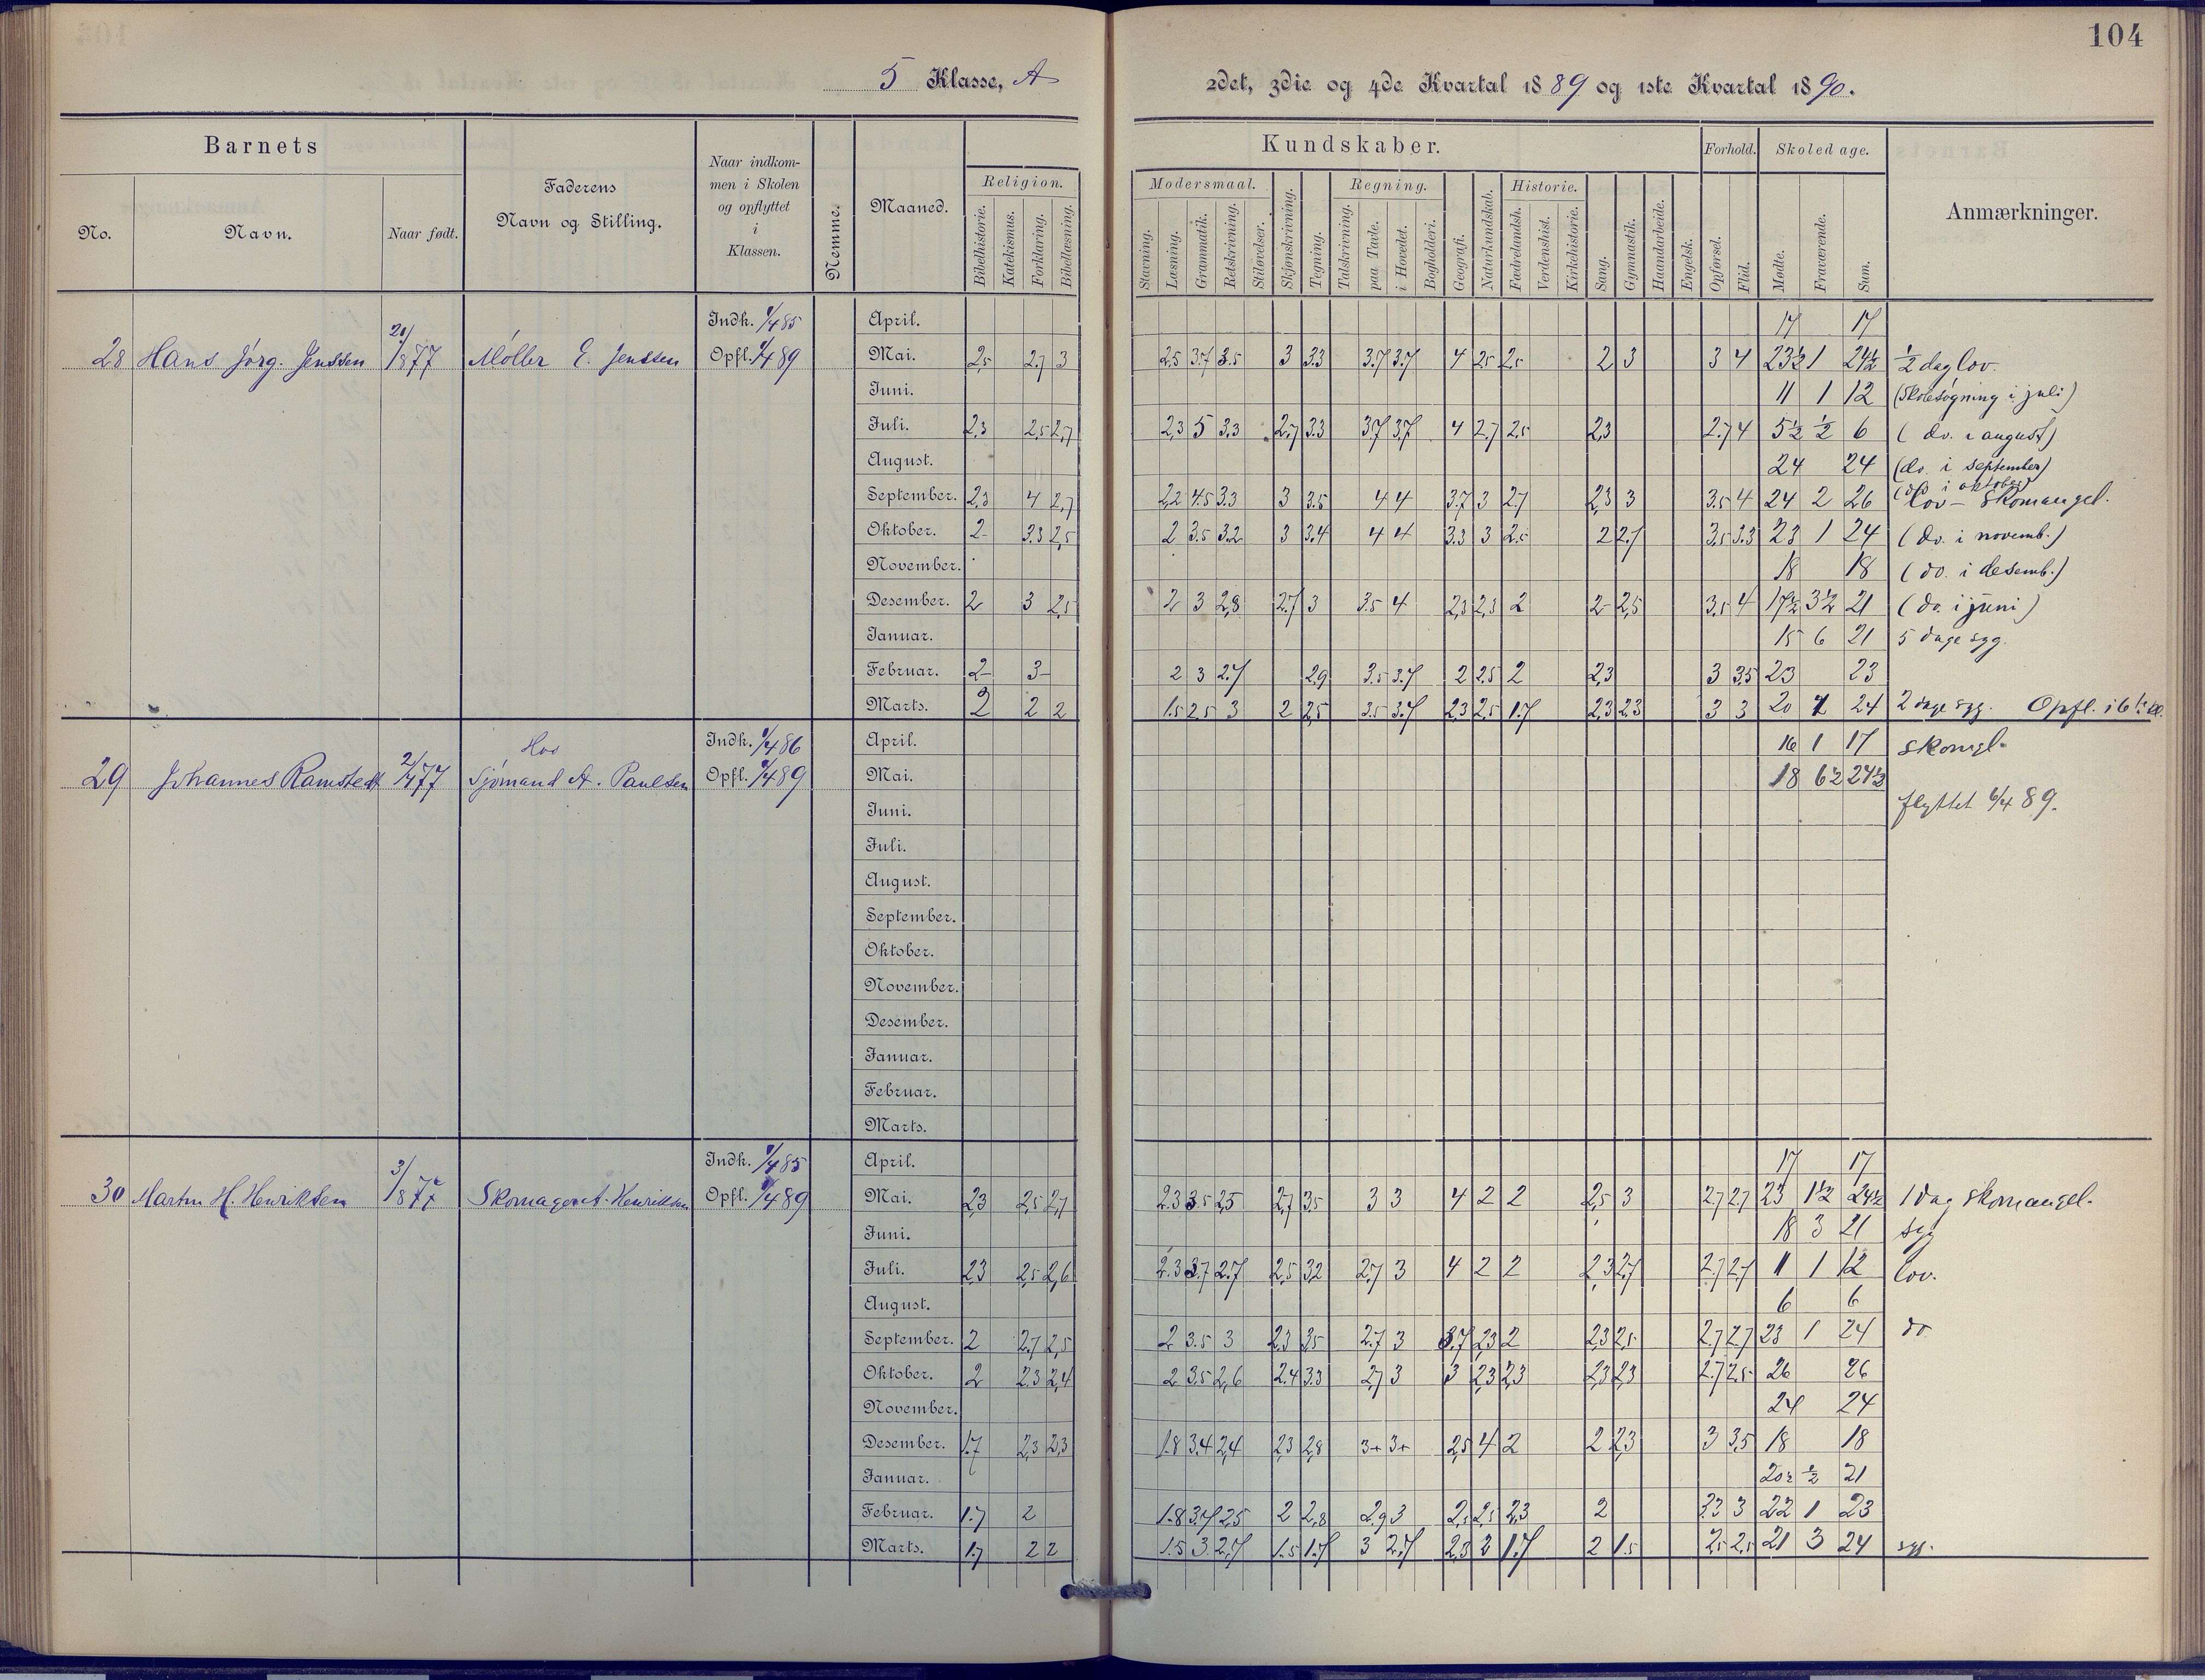 104
5 Klasse, A
2det, 3die og 4de Kvartal 1889 og 1ste Kvartal 1890.
Barnets
No.
Navn.
Naar født.
Faderens
Navn og Stilling.
Naar indkom-
men i Skolen
og opflyttet
i
Klassen.
Nemme.
Maaned.
Religion.
Bibelhistorie.
Katekismus.
Forklaring.
Bibellæsning.
Kundskaber.
Modersmaal.
Stavning.
Læsning.
Grammatik.
Retskrivning.
Stiløvelser.
Skjønskrivning.
Tegning.
Regning.
Talskrivning.
paa Tavle.
i Hovedet.
Bogholderi.
Geografi.
Naturkundskab.
Historie.
Fædrelandsh.
Verdenshist.
Kirkehistorie.
Sang.
Gymnastik.
Haandarbeide.
Engelsk.
Forhold.
Opførsel.
Flid.
Skoledage.
Mødte.
Fraværende.
Sum.
Anmærkninger.
28 Hans Jørg. Jenssen 20/8 77 Møller E. Jenssen
Indk. 1/4 85
Opfl. 1/4 89
April. 17 17
Mai. 2,5 2,7 3 2,5 3.7 3.5 3 3.3 3.7 3.7 4 2,5 2,5 2 3 3 4 23½ 1 24½ ½ dag lov.
Juni. 11 1 12 (Skolesøgning i juli)
Juli. 2,3 2,5 2,7 2,3 5 3,3 2,7 3.3 3.7 3,7 4 2,7 2,5 2,3 2.7 4 5½ ½ 6 (do. i august)
August. 24 24 (do. i september)
(do i oktober)
September. 2,3 4 2,7 2,2 4.5 3.3 3 3.5 4 4 3.7 3 2.7 2,3 3 3.5 4 24 2 26 lov - Skomangel.
Oktober. 2 3.3 2,5 2 3.5 3.2 3 3.4 4 4 3.3 3 2.5 2 2.7 3.5 3.3 23 1 24 (do. i novemb.)
November. 18 18 (do. i desemb.)
Desember. 2 3 2,5 2 3 2,8 2.7 3 3.5 4 2,3 2,3 2 2 2,5 3,5 4 17½ 3½ 21 (do. i juni)
Januar. 15 6 21 5 dage syg.
Februar. 2 3 2 3 2.7 2.9 3.5 3.7 2 2.5 2 2,3 3 3.5 23 23
Marts. 2 2 2 1.5 2.5 3 2 2,5 3.5 3.7 2,3 2,5 1.7 2,3 2,3 3 3 20 24 2 dage syg. Opfl. i 6te kl.
29 Johannes Ramstedt 2/1 77 Hos
Sjømand A. Paulsen
Indk. 1/4 86
Opfl. 1/4 89
April. 16 1 17 skomgl.
Mai. 18 6½ 24½
Juni. flyttet 6/4 89.
Juli.
August.
September.
Oktober.
November.
Desember.
Januar.
Februar.
Marts.
30 Martin H. Henriksen 3/8 77 Skomager A. Henriksen
Indk. 1/4 85
Opfl. 1/4 89
April. 17 17
Mai. 2,3 2,5 2,7 2.3 3.5 2,5 2,7 3.5 3 3 4 2 2 2,5 3 2,7 2,7 23 1½ 24½ 1 dag skomangel.
Juni. 18 3 21 syg
Juli. 2,3 2,5 2,6 2.3 3.7 2.7 2,5 3.2 2,7 3 4 2 2 2,3 2,7 2,7 2,7 11 1 12 lov.
August. 6 6
September. 2 2.7 2,5 2 3.5 3 2,3 3.5 2.7 3 3.7 2,3 2 2,3 2,5 2,7 2,7 23 1 24 do
Oktober. 2 2.3 2,4 2 3.5 2,6 2.4 3.3 2,7 3 3 2,3 2,3 2,3 2,3 2.7 2.5 26 26
November. 24 24
Desember. 1.7 2,3 2,3 1.8 3.4 2,4 2,3 2,8 3+ 3+ 2,5 4 2 2 2,3 3 3.5 18 18
Januar. 20½ ½ 21
Februar. 1.7 2 1.8 3.7 2.5 2 2,8 2.9 3 2,5 2,5 2,3 2 3.3 3 22 1 23
Marts. 1.7 2 2 1.5 3 2.7 1.5 1.7 3 2.7 2,3 3 1.7 2 1.5 2,5 2,5 21 3 24 syg.